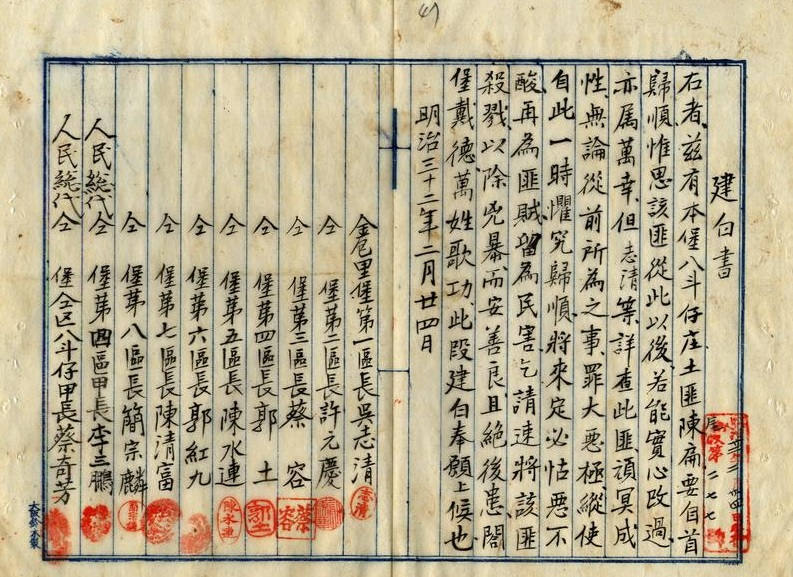 建白書
右者、茲有本堡八斗仔庄土匪陳扁要自首
歸順惟思該匪從此以後若能實心改過、
亦属萬幸、但志清等詳查此匪頑冥成
性、無論從前所為之事罪大惡極縱使
自此一時懼究歸順將來定必怙惡不
酸、再為匪賊留為民害乞請速將該匪
殺戮以除兇暴而安善良且絕後患閤
堡戴德萬姓歌功、此段建白奉願上候也
明治三十二年二月廿四日
金包里堡第一區長吳志清
仝 堡第二區長許元慶
仝 堡第三區長蔡容
仝 堡第四區長郭土
仝 堡第五區長陳水連
仝 堡第六區長郭紅九
仝 堡第七區長陳清富
仝 堡第八區長簡宗麟
人民総代 仝 堡第四區甲長李三鵬
人民総代 仝 堡仝区八斗仔甲長蔡奇芳